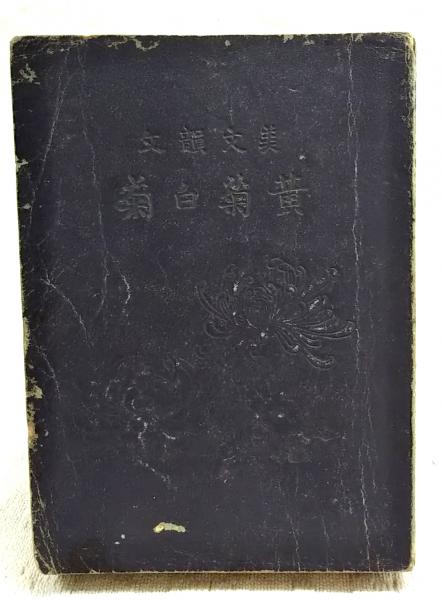 美文韻文
黃菊白菊